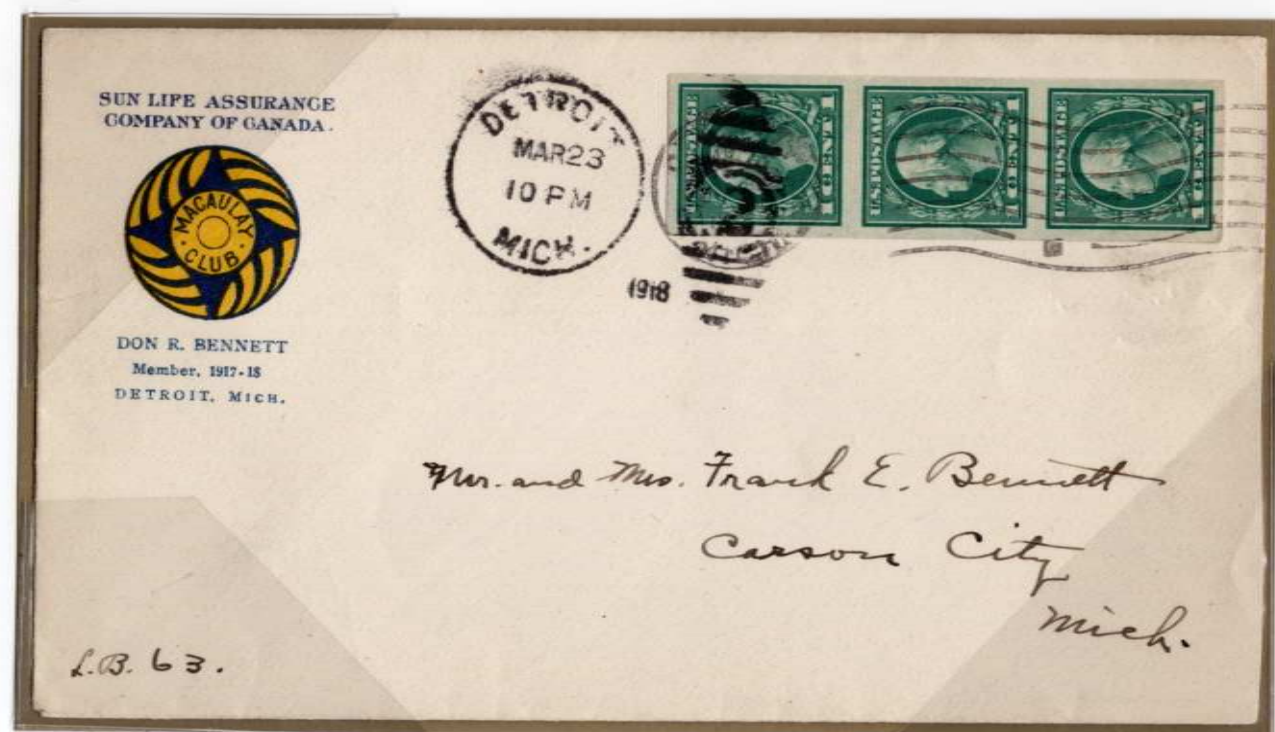 SUN LIFE ASSURANCE
COMPANY OF CANADA.
MACAULAY
CLUB
DON R. BENNETT
Member, 1917-18
DETROIT, MICH.
DETROIT
MAR 23
10 PM
MICH.
1918
U.S. POSTAGE
1 CENT 1
U.S. POSTAGE
1 CENT 1
U.S. POSTAGE
1 CENT 1
Mr. and Mrs. Frank E. Bennett
Carson City
Mich.
L.B. 63.